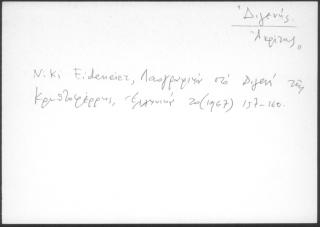 Διγενής
Ἀκρίτης
Niki Eideneier, Λαογραφικὰ στὸ Διγενῆ τῆς
Κρυπτοφέρρης, Ἑλληνικά 20 (1967) 157-160.